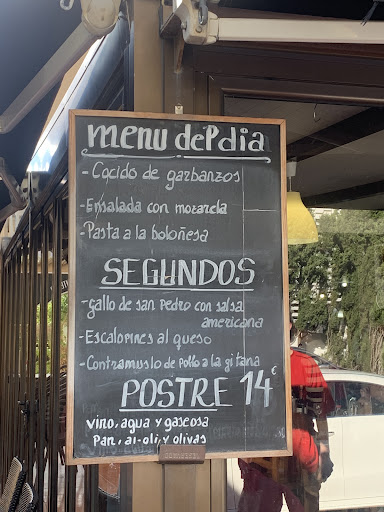 menu del dia
- Cocido de garbanzos
- Ensalada con mozarela
- Pasta a la boloñesa
SEGUNDOS
- gallo de san Pedro con salsa
americana
- Escalopines al queso
- Contramuslo de pollo a la gitana
POSTRE 14€
vino, agua y gaseosa
Pan, al-oli y olivas